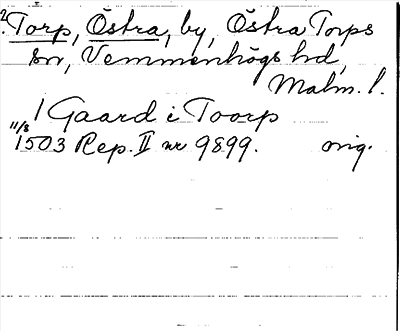 2. Torp, Östra, by, Östra Torps
sn, Vemmenhögs hd,
Malm. l.
1 Gaard i Toorp
11/8
1503 Rep. II nr 9899. orig.